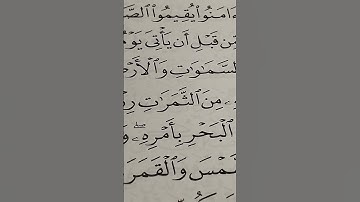 ءَامَنُوا۟ يُقِيمُوا۟ ٱلصَّ
مِّن قَبْلِ أَن يَأْتِىَ يَوْمٌ
ٱلسَّمَٰوَٰتِ وَٱلْأَرْضَ
مِنَ ٱلثَّمَرَٰتِ رِزْ
ٱلْبَحْرِ بِأَمْرِهِۦ ۖ وَ
ٱلشَّمْسَ وَٱلْقَمَرَ